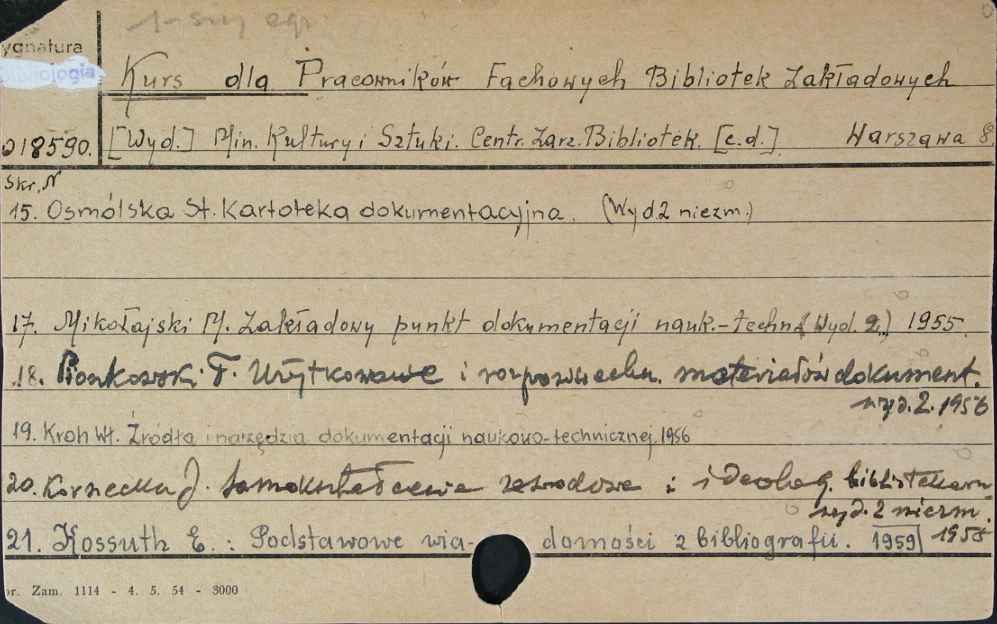 1-szy egz.
ygnatura
Kurs dla Pracowników Fachowych Bibliotek Zakładowych
018590. [Wyd.] Min. Kultury i Sztuki. Centr. Zarz. Bibliotek. [c.d.] Warszawa 8°
Skr, N
15. Osmólska St. Kartoteka dokumentacyjna. (Wyd 2 niezm.)
17. Mikołajski M. Zakładowy punkt dokumentacji nauk.-techn. (Wyd. 2.) 1955.
18. Pionkowski F. Użytkowanie i rozpowszechn. materiałów dokument.
wyd. 2. 1956
19. Kroh Wł. Źródła i narzędzia dokumentacji naukowo-technicznej. 1956
20. Kornecka J. Samokształcenie zawodowe i ideolog. bibliotekarzy
wyd. 2 niezm.
21. Kossuth E. : Podstawowe wiadomości z bibliografii. 1959 1955
Zam. 1114 - 4. 5. 54 - 3000